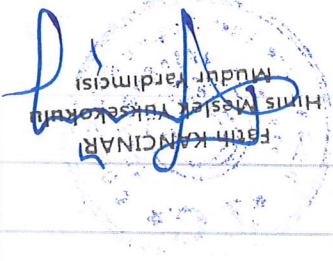 Fatih KANCINAR
Hınıs Meslek Yüksekokulu
Müdür Yardımcısı